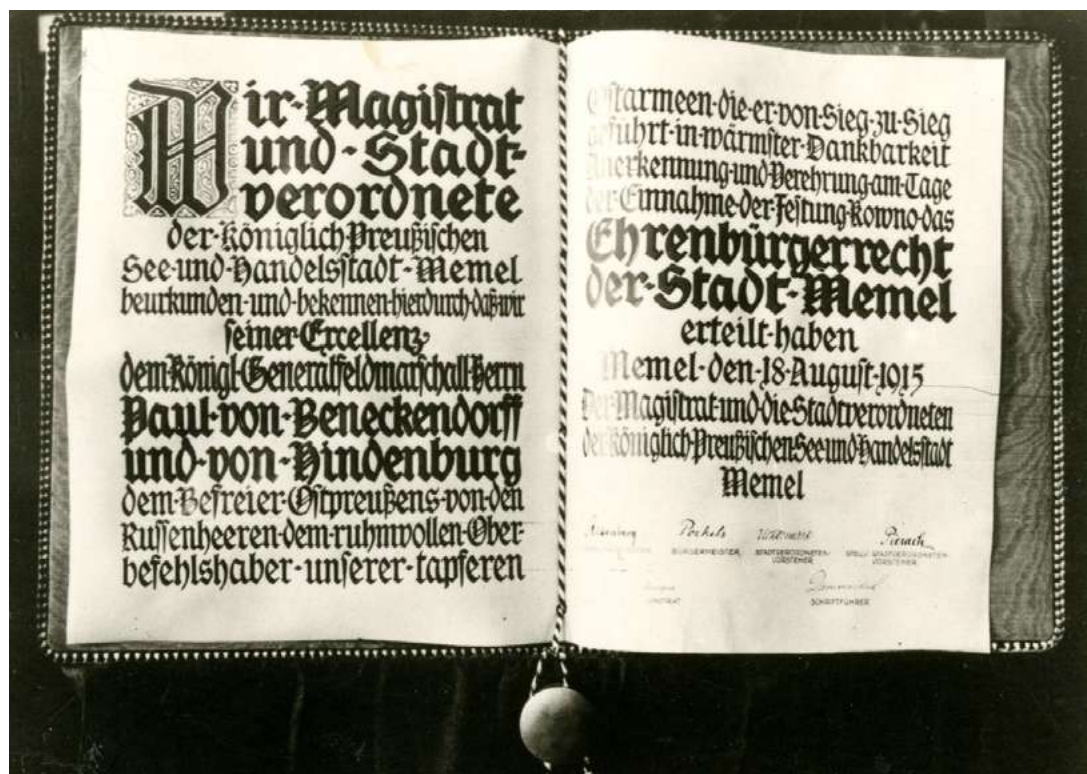 Wir·Magistrat
und·Stadt-
verordnete
der·Königlich·Preußischen
See·und·Handelsstadt·Memel
beurkunden·und·bekennen·hierdurch·daß·wir
seiner·Excellenz
dem·Königl·Generalfeldmarschall·Herrn
Paul·von·Beneckendorff
und·von·Hindenburg
dem·Befreier·Ostpreußens·von·den
Russenheeren·dem·ruhmvollen·Ober-
befehlshaber·unserer·tapferen
Ostarmeen·die·er·von·Sieg·zu·Sieg
geführt·in·wärmster·Dankbarkeit
Anerkennung·und·Verehrung·am·Tage
der·Einnahme·der·Festung·Kowno·das
Ehrenbürgerrecht
der·Stadt·Memel
erteilt·haben
Memel·den·18·August·1915
Der·Magistrat·und·die·Stadtverordneten
der·Königlich·Preußischen·See·und·Handelsstadt
Memel
Pockels Pierach
BÜRGERMEISTER STADTVERORDNETEN- STELLV. STADTVERORDNETEN-
VORSTEHER VORSTEHER
SCHRIFTFÜHRER